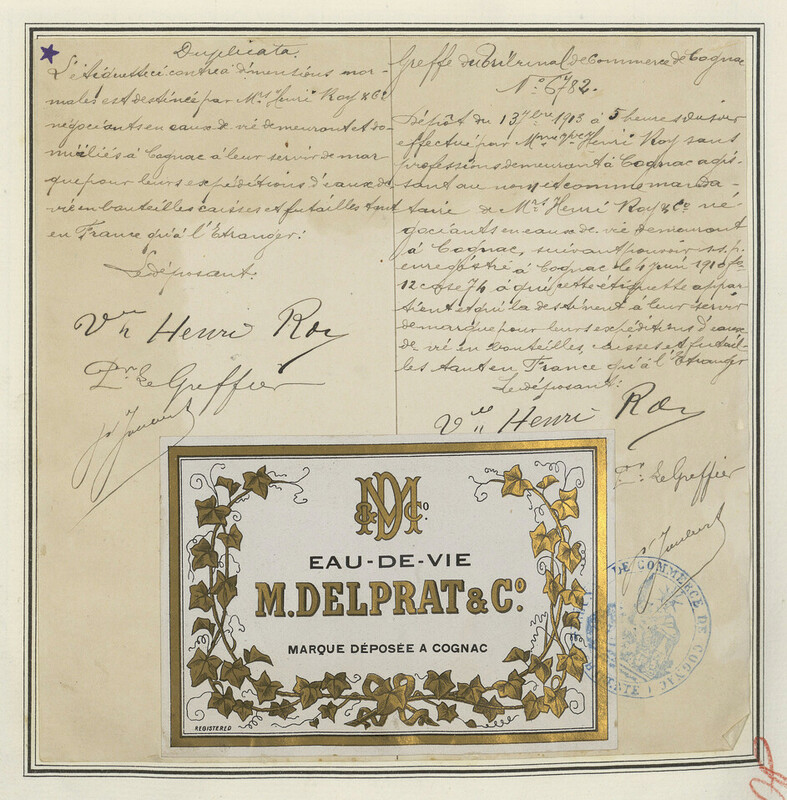 Duplicata.
L'étiquette ci contre à dimensions nor-
males est destinée par Mrs Henri Roy & Co
négociants en eaux de vie demeurant et do-
miciliés à Cognac à leur servir de mar
que pour leurs expéditions d'eaux de
vie en bouteilles caisses et futailles tant
en France qu'à l'Etranger:
Le déposant:
Vve Henri Roy
Pr. Le Greffier
Greffe du Tribunal de Commerce de Cognac
No. 6782.
Dépôt du 13 7bre 1913 à 5 heures du soir
effectué par Mme Vve Henri Roy sans
professions demeurant à Cognac agis-
sant au nom et comme manda-
taire de Mrs Henri Roy & Co né-
gociants en eaux-de-vie demeurant
à Cognac, suivant pouvoir s.s.p.
enregistré à Cognac le 4 juin 1910 fo
12 case 74 à qui cette étiquette appar
tient et qui la destinent à leur servir
de marque pour leurs expéditions d'eaux
de-vie en bouteilles, caisses et futail-
les tant en France qu'à l'Etranger
Le déposant:
Vve Henri Roy
Pr. Le Greffier
M D & Co.
EAU-DE-VIE
M. DELPRAT & Co.
MARQUE DÉPOSÉE A COGNAC
REGISTERED
DE COMMERCE DE COGNAC